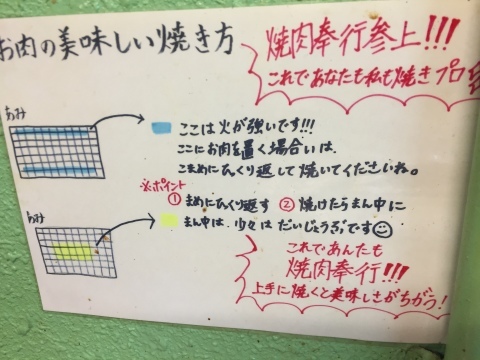 お肉の美味しい焼き方
焼肉奉行参上!!!
これであなたも私も焼きプロ
あみ
ここは火が強いです!!!
ここにお肉を置く場合いは、
こまめにひっくり返して焼いてくださいね。
※ポイント
① まめにひっくり返す ② 焼けたらまん中に
あみ
まん中は、少々はだいじょうぶです
これであんたも
焼肉奉行!!!
上手に焼くと美味しさがちがう!